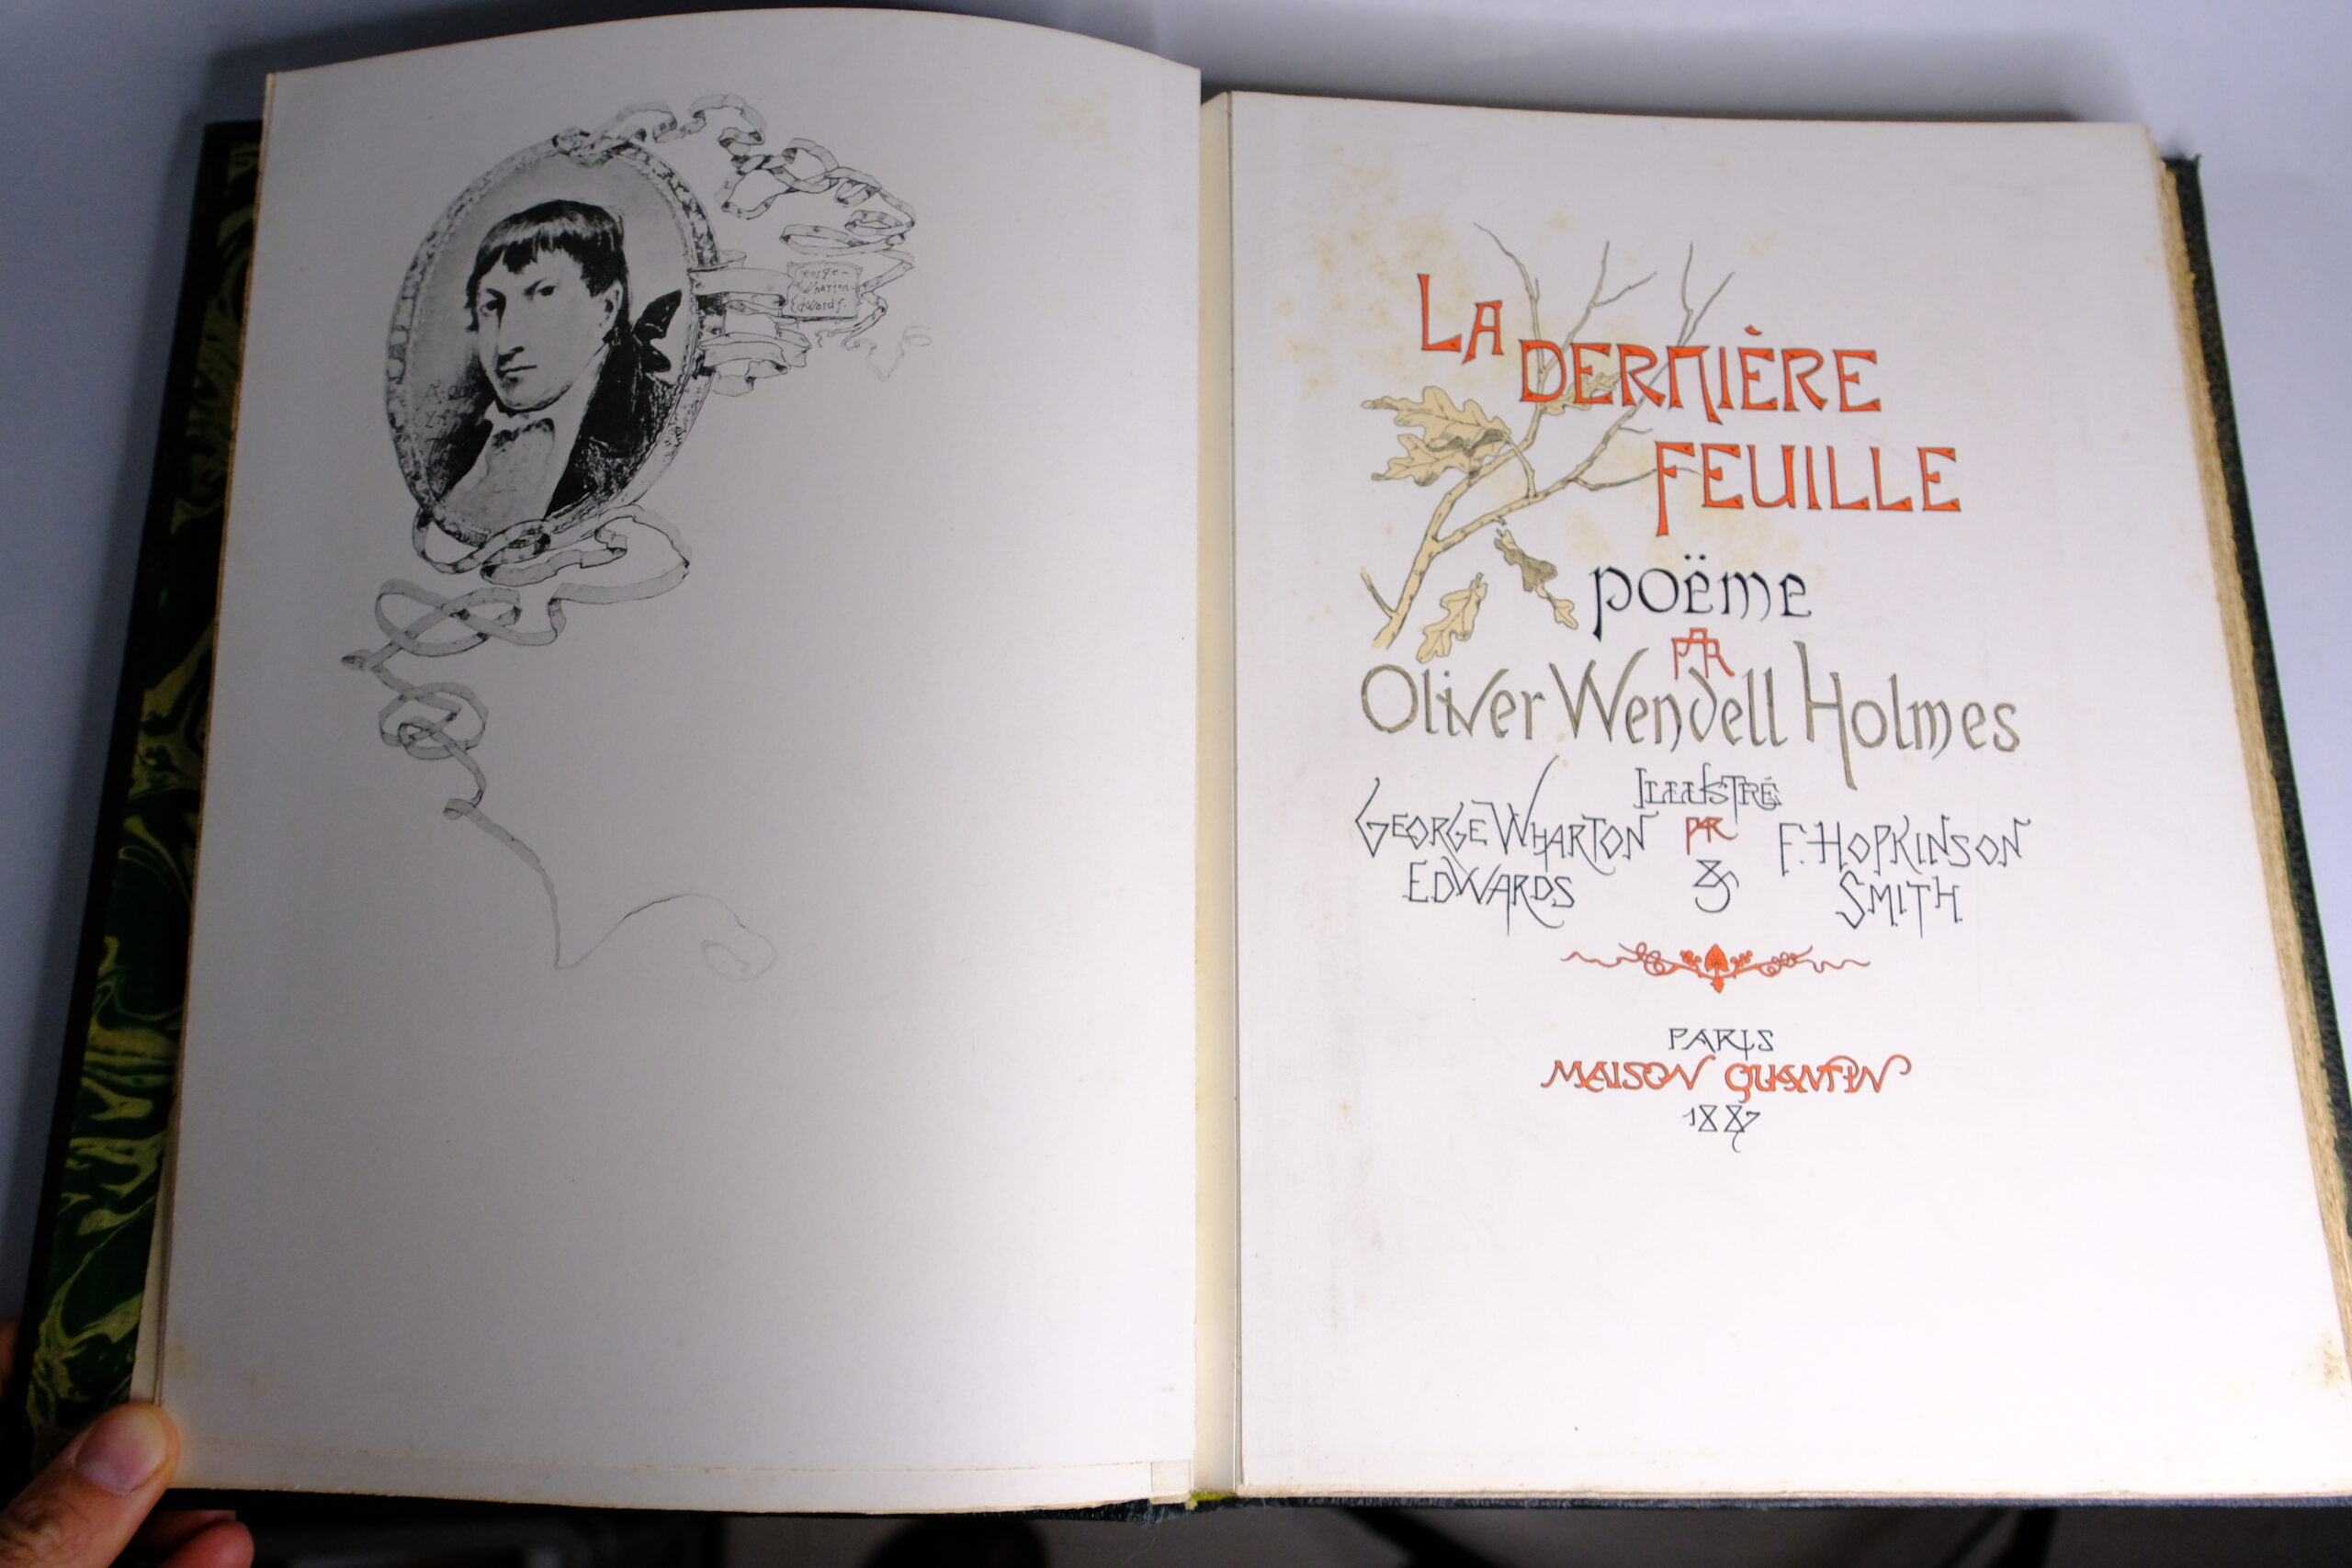 George-
Wharton-
Edwards.
LA
DERNIÈRE
FEUILLE
poëme
PAR
Oliver Wendell Holmes
ILLUSTRÉ
PAR
GEORGE WHARTON
EDWARDS
&
F. HOPKINSON
SMITH
PARIS
MAISON QUANTIN
1887